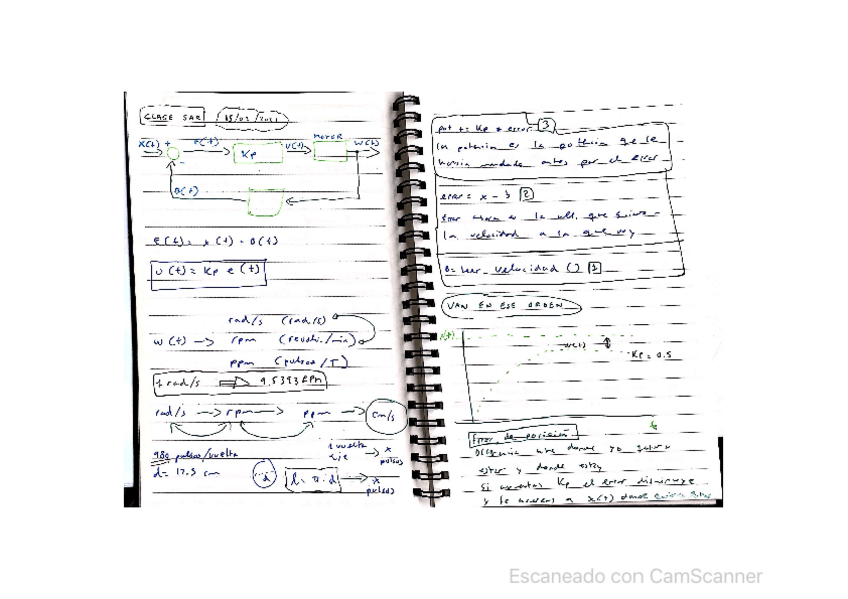 CLASE SAR 15/02/2021
x(t) + e(t) Kp U(t) MOTOR w(t)
-
θ(t)
e(t) = x(t) - θ(t)
U(t) = Kp e(t)
rad/s (rad/s)
w(t) → rpm (revolu./min)
ppm (pulsos/T)
1 rad/s ⇒ 9.5393 RPM
rad/s → rpm → ppm → cm/s
980 pulsos/vuelta
1 vuelta eje → x pulsos
d = 17.5 cm
d
l = π·d → x pulsos
pot += Kp * error 3
La potencia es la potencia que le
había mandado antes por el error
error = x - 3 2
Error ahora es la vel. que quiero
la velocidad a la que voy
θ = leer_velocidad () 1
VAN EN ESE ORDEN
x(t)
w(t)
Kp = 0.5
t
Error de posición
entre donde yo quiero
estar y donde estoy
Si aumentas Kp el error disminuye
y te acercas a x(t) donde quieres estar
Escaneado con CamScanner